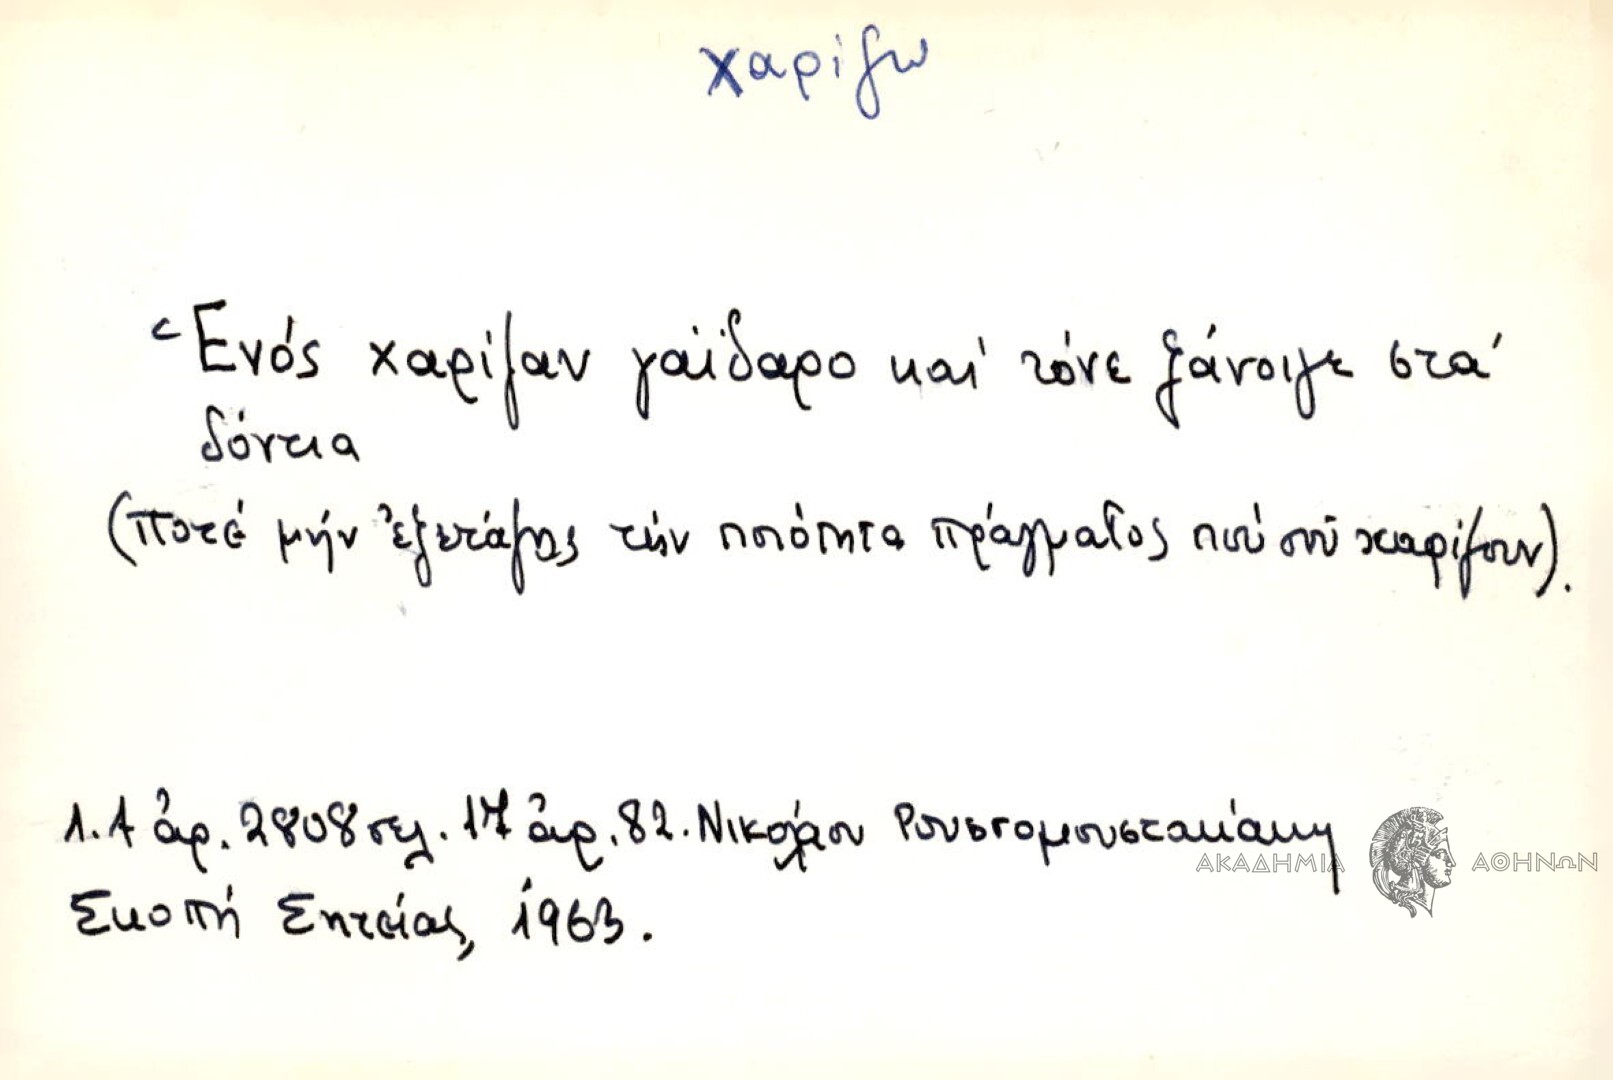 χαρίζω
Ἑνός χαρίζαν γαϊδαρο καί τόνε ξάνοιγε στά
δόντια
(Ποτέ μήν ἐξετάζης τήν ποιότητα πράγματος πού σοῦ χαρίζουν).
Λ.Α ἀρ. 2808 σελ. 17 ἀρ. 82. Νικολάου Ρουστομουστακάκη
Σκοπή Σητείας, 1963.
ΑΚΑΔΗΜΙΑ ΑΘΗΝΩΝ